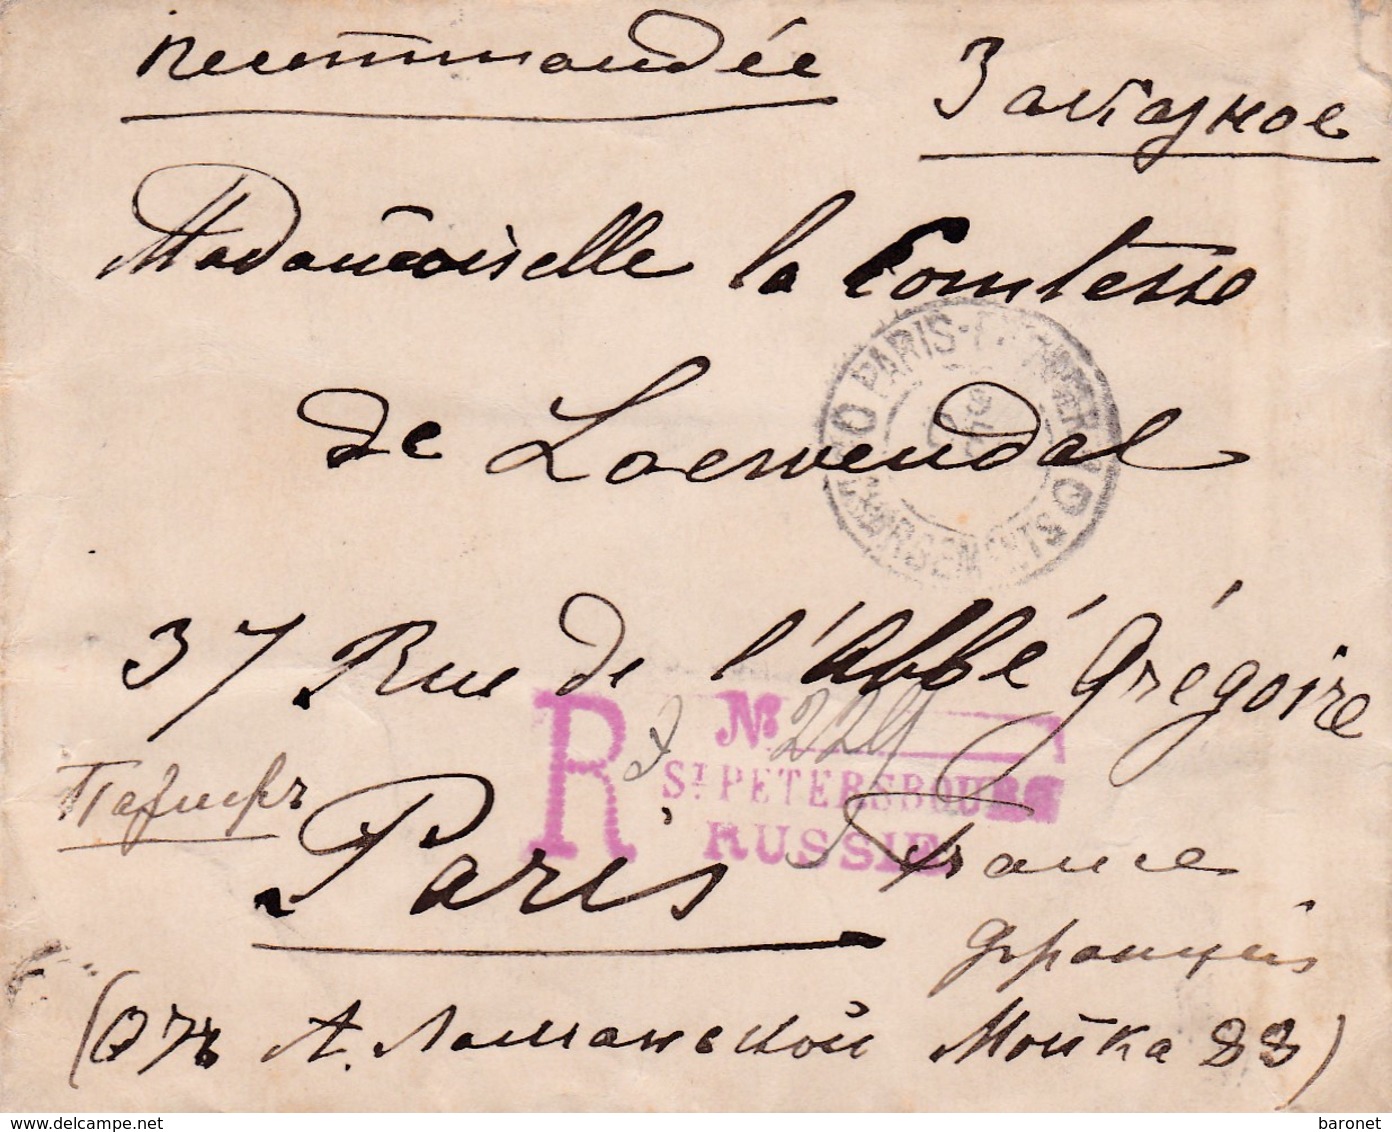 Recommandée Заказное
Mademoiselle la Comtesse
de Loewendal
PARIS-ETRANGER
CHARGEMENTS
37 Rue de l'Abbé Grégoire
R № 229
St PETERSBOURG
RUSSIE
Парижъ
Paris France
Франція
(Отъ А. Ламанской Мойка 83)
delcampe.net
baronet